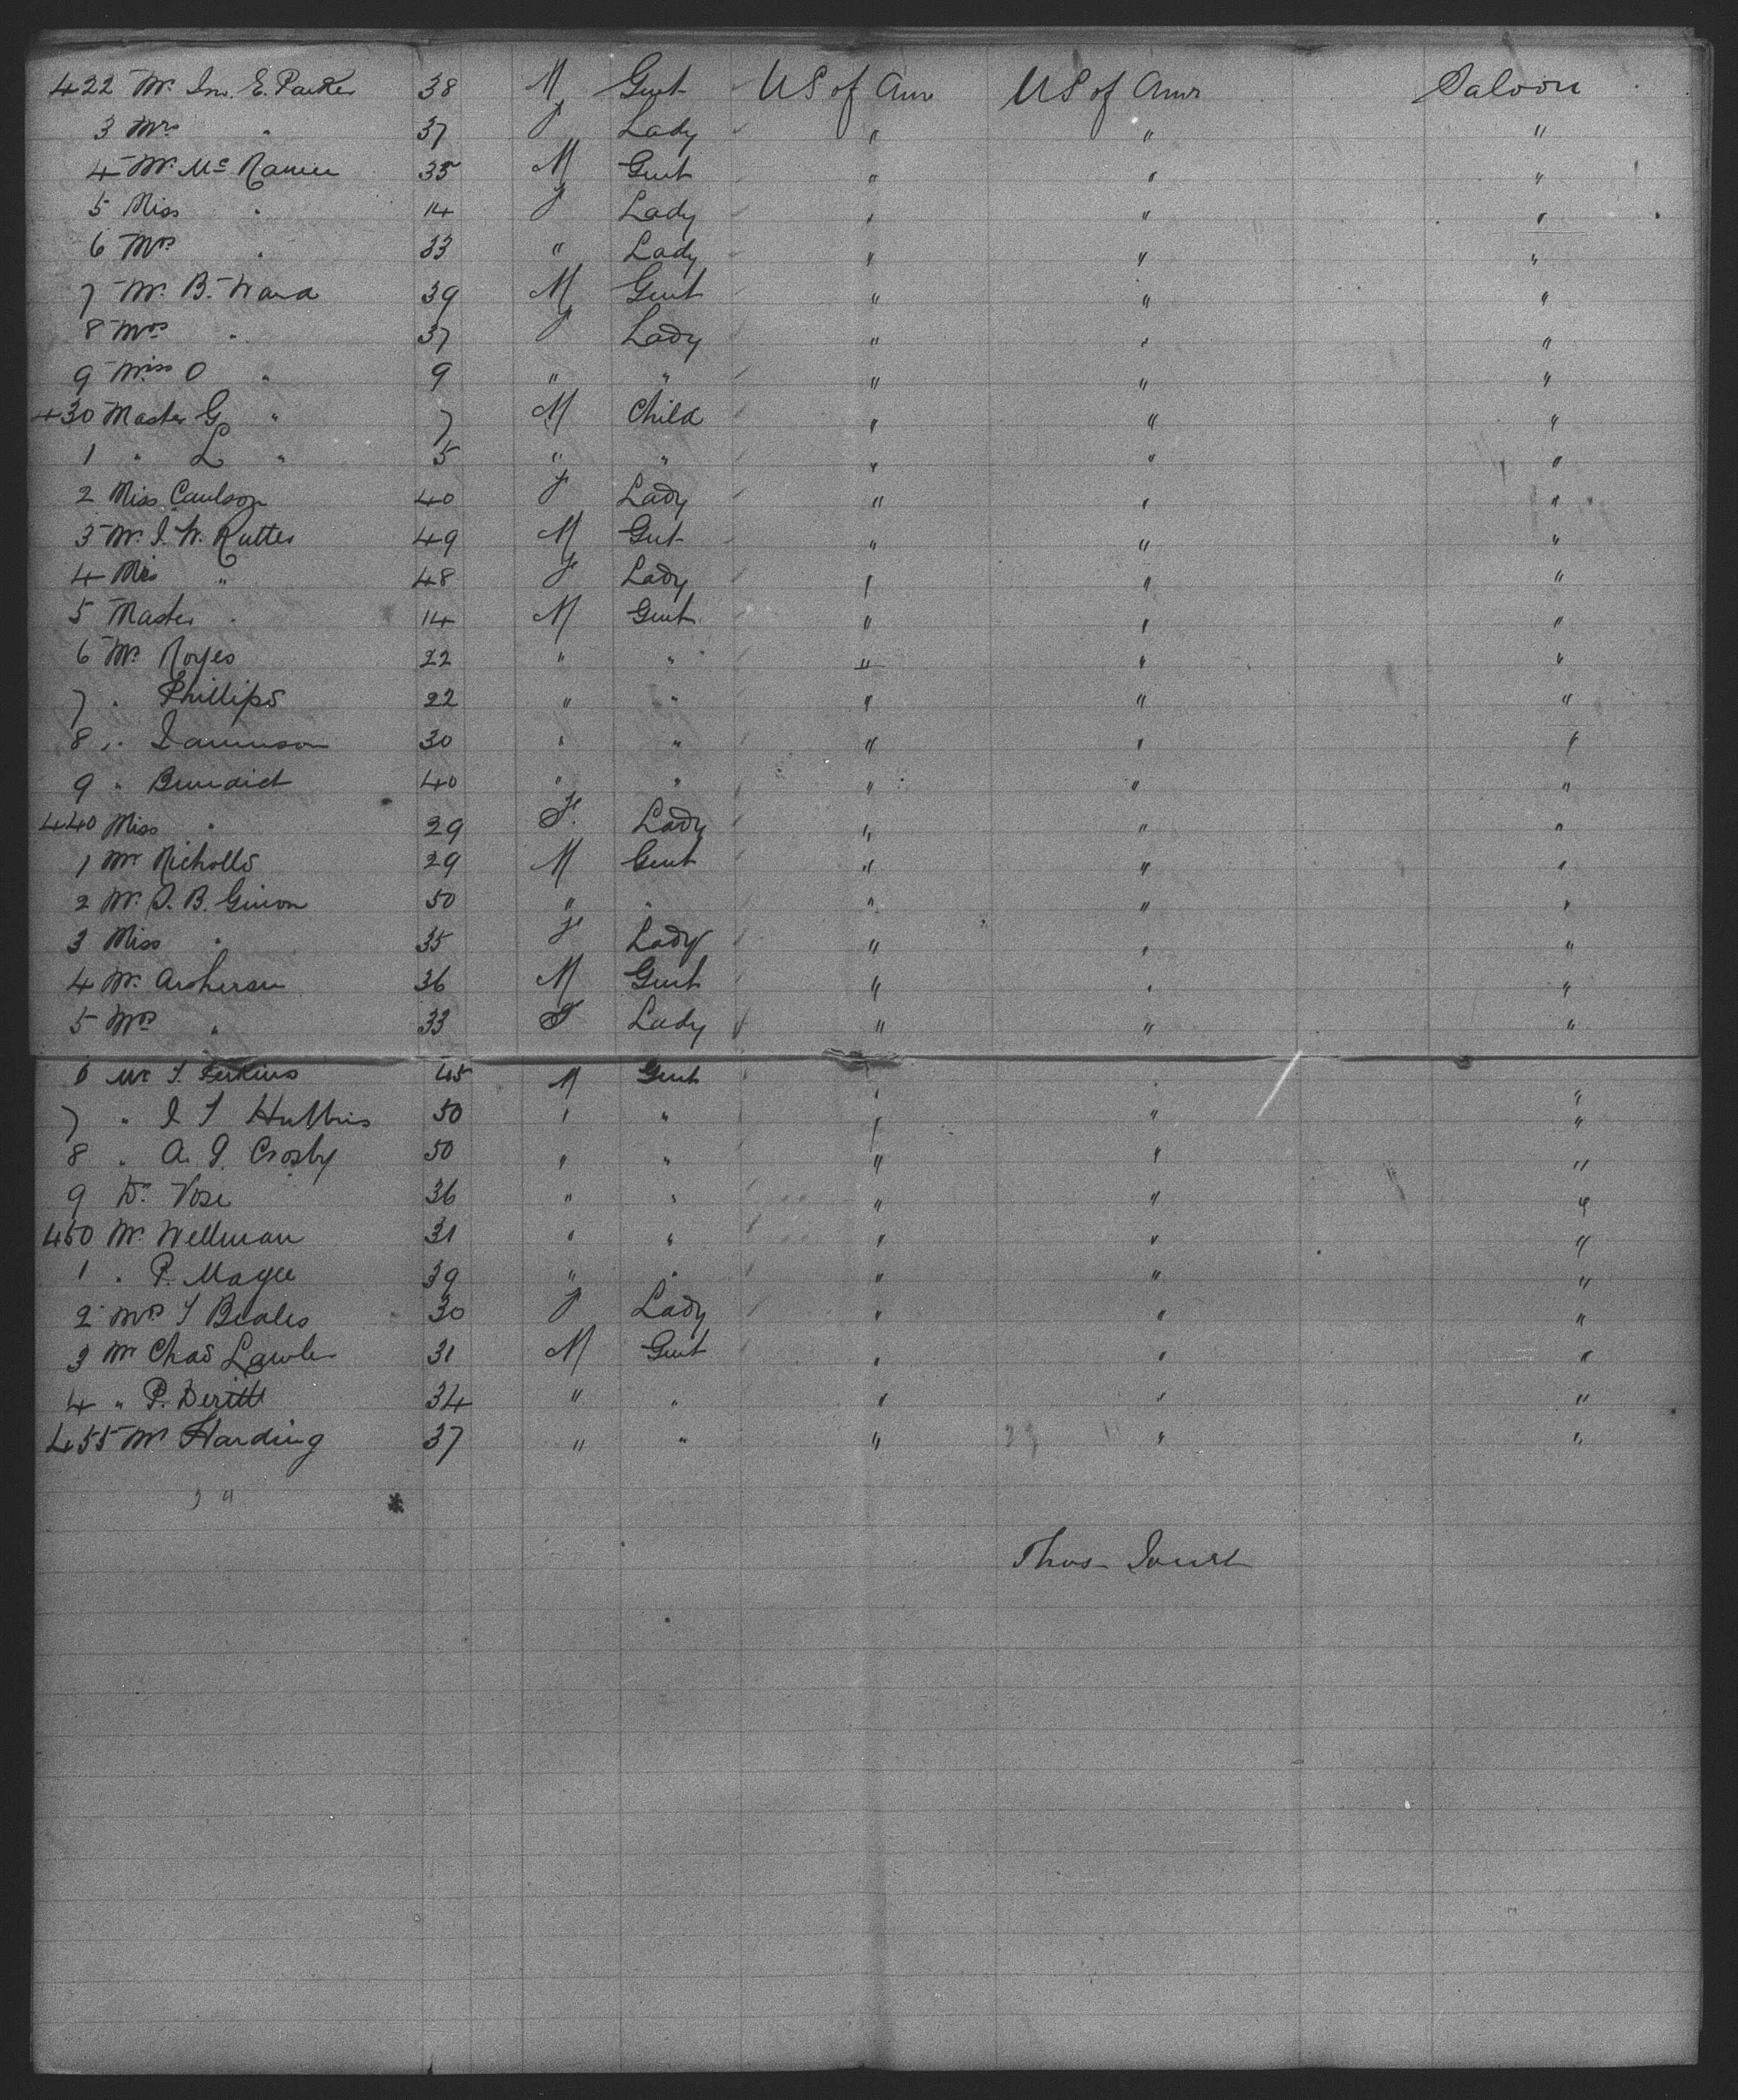 422 Mr. Jno. E. Parker 38 M Gent US of Amr US of Amr Saloon
3 Mrs " 37 f Lady " " "
4 Mr. Mc 35 M Gent " " "
5 Miss " 14 f Lady " " "
6 Mrs " 33 " Lady " " "
7 Mr. B. Ward 39 M Gent " " "
8 Mrs " 37 f Lady " " "
9 Miss O " 9 " " " " "
430 Master G " 7 M Child " " "
1 " L " 5 " " " " "
2 Miss Caulson 40 f Lady " " "
3 Mr. J. W. Rutter 49 M Gent " " "
4 Mrs " 48 f Lady " " "
5 Master " 14 M Gent " " "
6 Mr Noyes 22 " " " " "
7 " Phillips 22 " " " " "
8 " Jamison 30 " " " " "
9 " Benedict 40 " " " " "
440 Miss " 29 f. Lady " " "
1 Mr Nicholls 29 M Gent " " "
2 Mr. J. B. Guion 50 " " " " "
3 Miss " 35 f Lady " " "
4 Mr. 36 M Gent " " "
5 Mrs " 33 f Lady " " "
6 Mr J. Perkins 45 M Gent " " "
7 " J 50 " " " " "
8 " A. J. Crosby 50 " " " " "
9 Dr. Vose 36 " " " " "
450 Mr. Wellman 31 " " " " "
1 " P. Magee 39 " " " " "
2 Mrs J Beales 30 f Lady " " "
3 Mr Chas Lawler 31 M Gent " " "
4 " P. 34 " " " " "
455 Mr Harding 37 " " " " "
" "
Thos